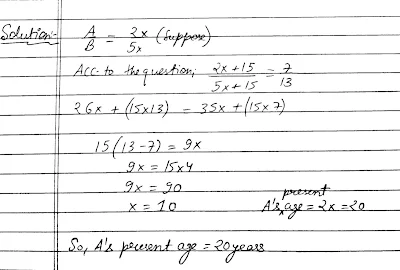 Solution:- A/B = 2x/5x (Suppose)
Acc. to the question; (2x+15)/(5x+15) = 7/13
26x + (15x13) = 35x + (15x7)
15(13-7) = 9x
9x = 15x4
9x = 90
x = 10
A's present age = 2x = 20
So, A's present age = 20 years